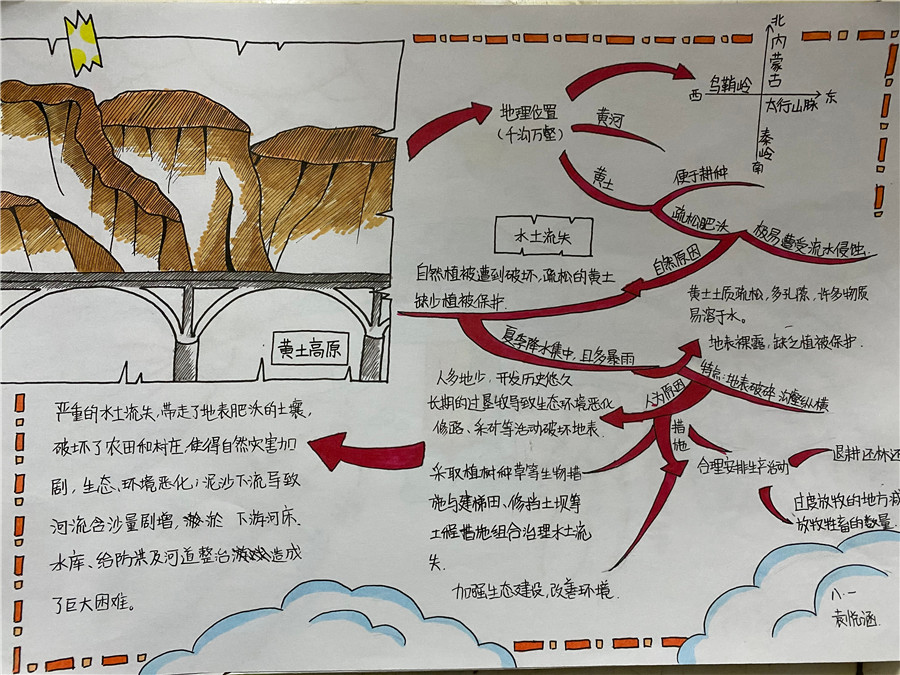 北
内蒙古
乌鞘岭
西
东
太行山脉
秦岭
南
地理位置
(千沟万壑)
黄河
黄土
便于耕种
疏松肥沃
极易遭受流水侵蚀.
水土流失
自然原因
自然植被遭到破坏,疏松的黄土
缺少植被保护.
黄土土质疏松,多孔隙,许多物质
易溶于水。
地表裸露,缺乏植被保护.
夏季降水集中,且多暴雨
特点:地表破碎 沟壑纵横
黄土高原
人为原因
人多地少,开发历史悠久
长期的过垦牧导致生态环境恶化
修路、采矿等活动破坏地表.
措施
合理安排生产活动
退耕还林还
过度放牧的地方减
放牧牲畜的数量.
采取植树种草等生物措
施与建梯田、修挡土坝等
工程措施组合治理水土流
失.
加强生态建设,改善环境.
严重的水土流失,带走了地表肥沃的土壤,
破坏了农田和村庄,使得自然灾害加
剧,生态、环境恶化;泥沙下流导致
河流含沙量剧增, 淤 下游河床.
水库、给防洪及河道整治造成
了巨大困难。
八.一
袁悦涵.